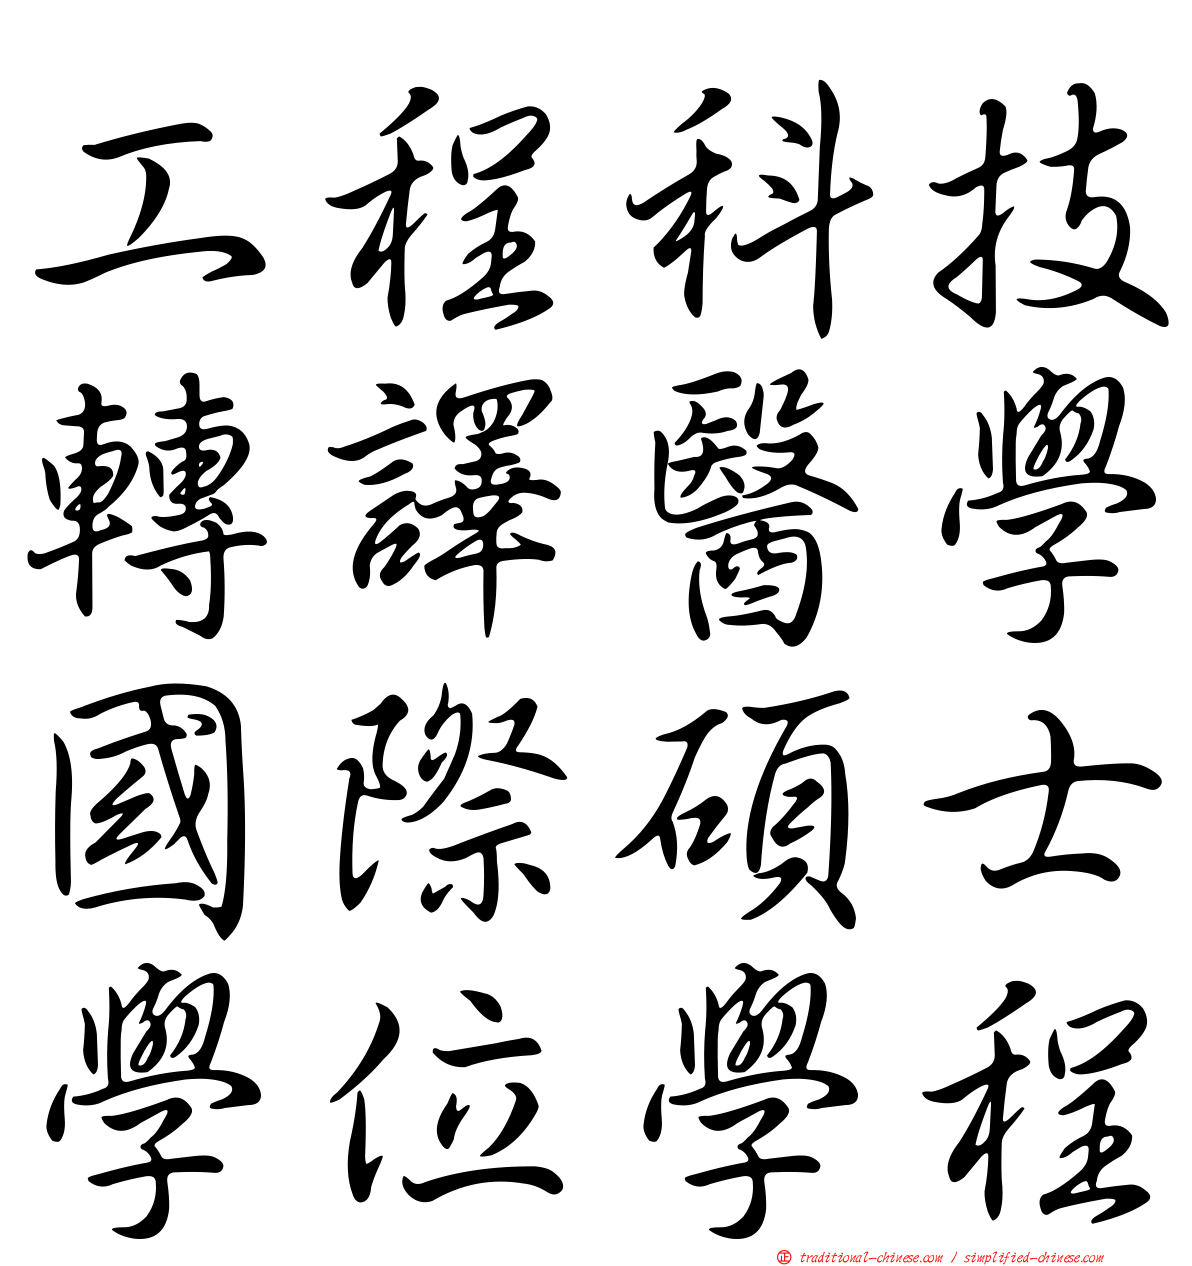 工程科技
轉譯醫學
國際碩士
學位學程
正 traditional-chinese.com / simplified-chinese.com